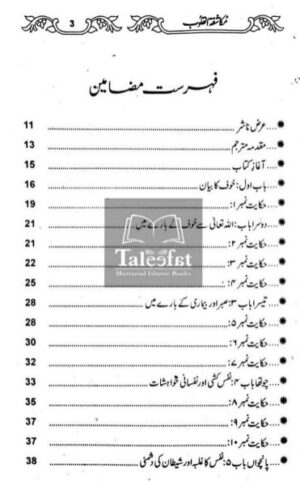 مکاشفۃ القلوب 3
فہرست مضامین
عرض ناشر ........ 11
مقدمہ مترجم ........ 13
آغاز کتاب ........ 15
باب اول: خوف کا بیان ........ 16
حکایت نمبر ۱: ........ 19
دوسرا باب: اللہ تعالیٰ سے خوف کے بارے میں ........ 21
حکایت نمبر ۲: ........ 21
حکایت نمبر ۳: ........ 22
حکایت نمبر ۴: ........ 25
تیسرا باب ۳: صبر اور بیماری کے بارے میں ........ 28
حکایت نمبر ۵: ........ 28
حکایت نمبر ۶: ........ 30
حکایت نمبر ۷: ........ 32
چوتھا باب ۴: نفس کشی اور نفسانی خواہشات ........ 33
حکایت نمبر ۸: ........ 35
حکایت نمبر ۹: ........ 37
حکایت نمبر ۱۰: ........ 37
پانچواں باب ۵: نفس کا غلبہ اور شیطان کی دشمنی ........ 38
Taleefat
Mustanad Islamic Books